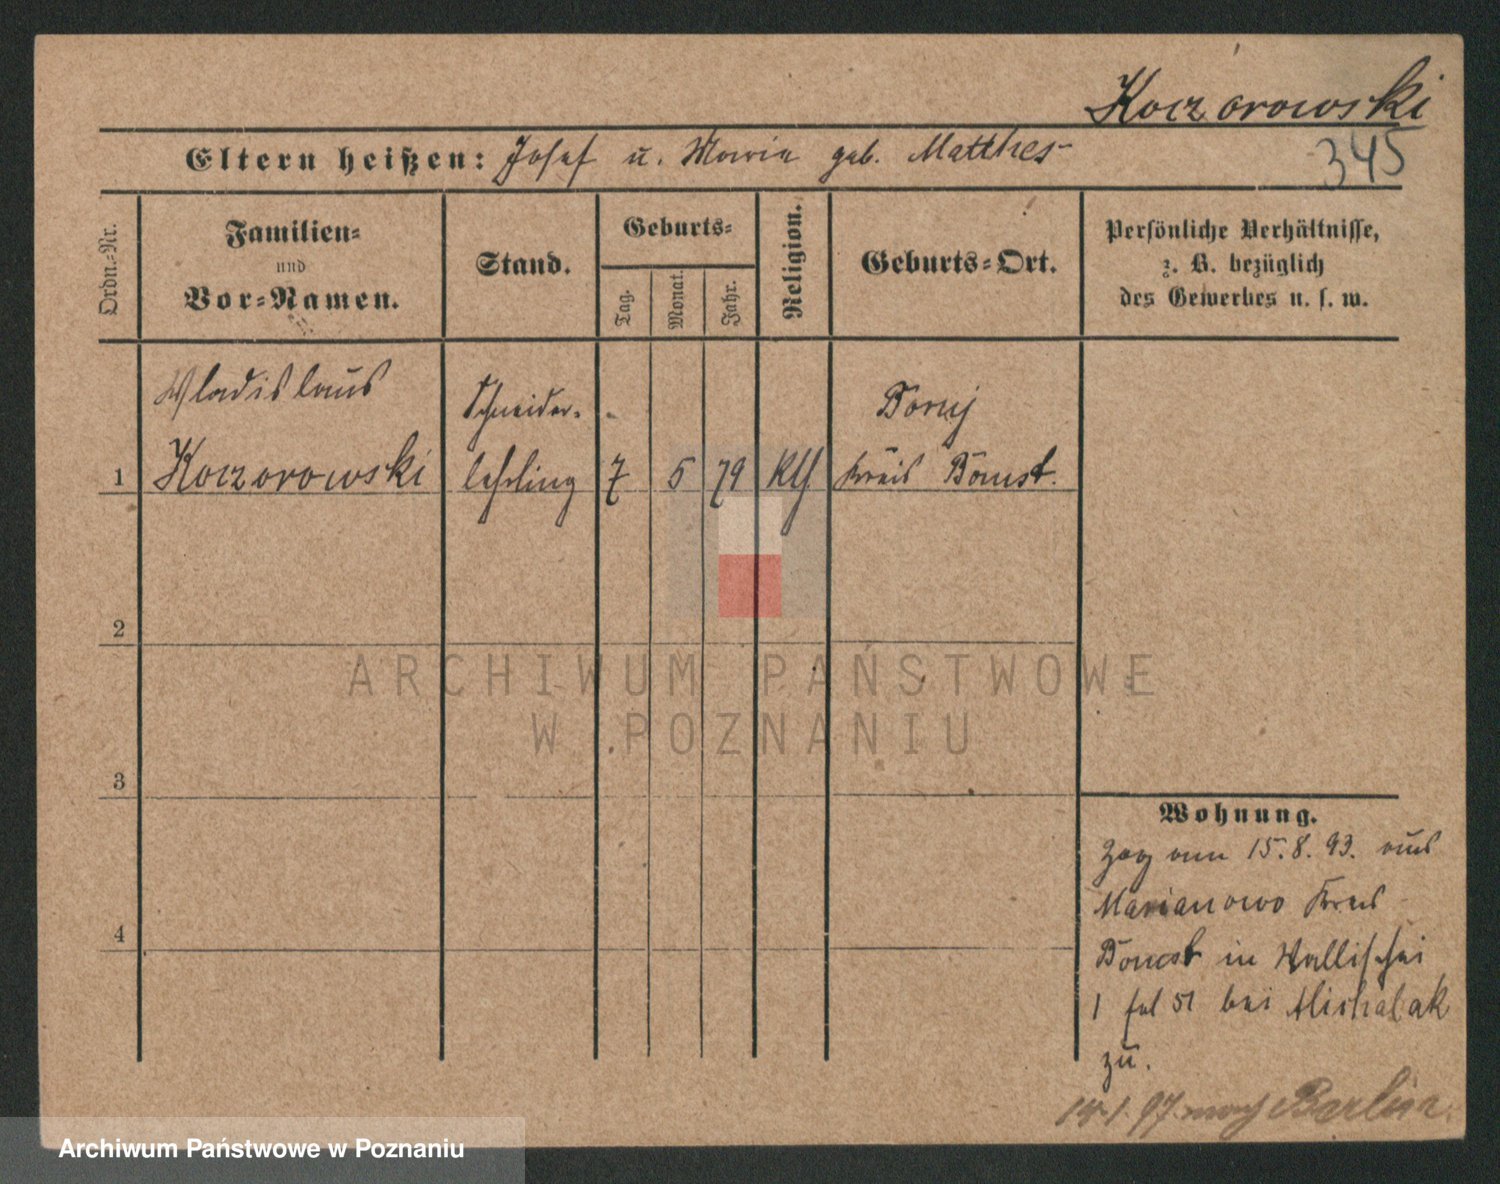 Koczorowski
Eltern heißen: Josef u. Maria geb. Matthes
345
Ordn.-Nr.
Familien-
und
Vor-Namen.
Stand.
Geburts-
Tag.
Monat.
Jahr.
Religion.
Geburts-Ort.
Persönliche Verhältnisse,
z. B. bezüglich
des Gewerbes u. s. w.
Wladislaus
Schneider-
Boruj
1 Koczorowski lehrling 7 5 79 Kth Kreis Bomst.
2
3
4
ARCHIWUM PAŃSTWOWE
W POZNANIU
Wohnung.
Zog am 15.8.93. aus
Marianowo Kreis
Bomst in Wallischei
1 fol 51 bei
zu.
1.97 nach Berlin
Archiwum Państwowe w Poznaniu